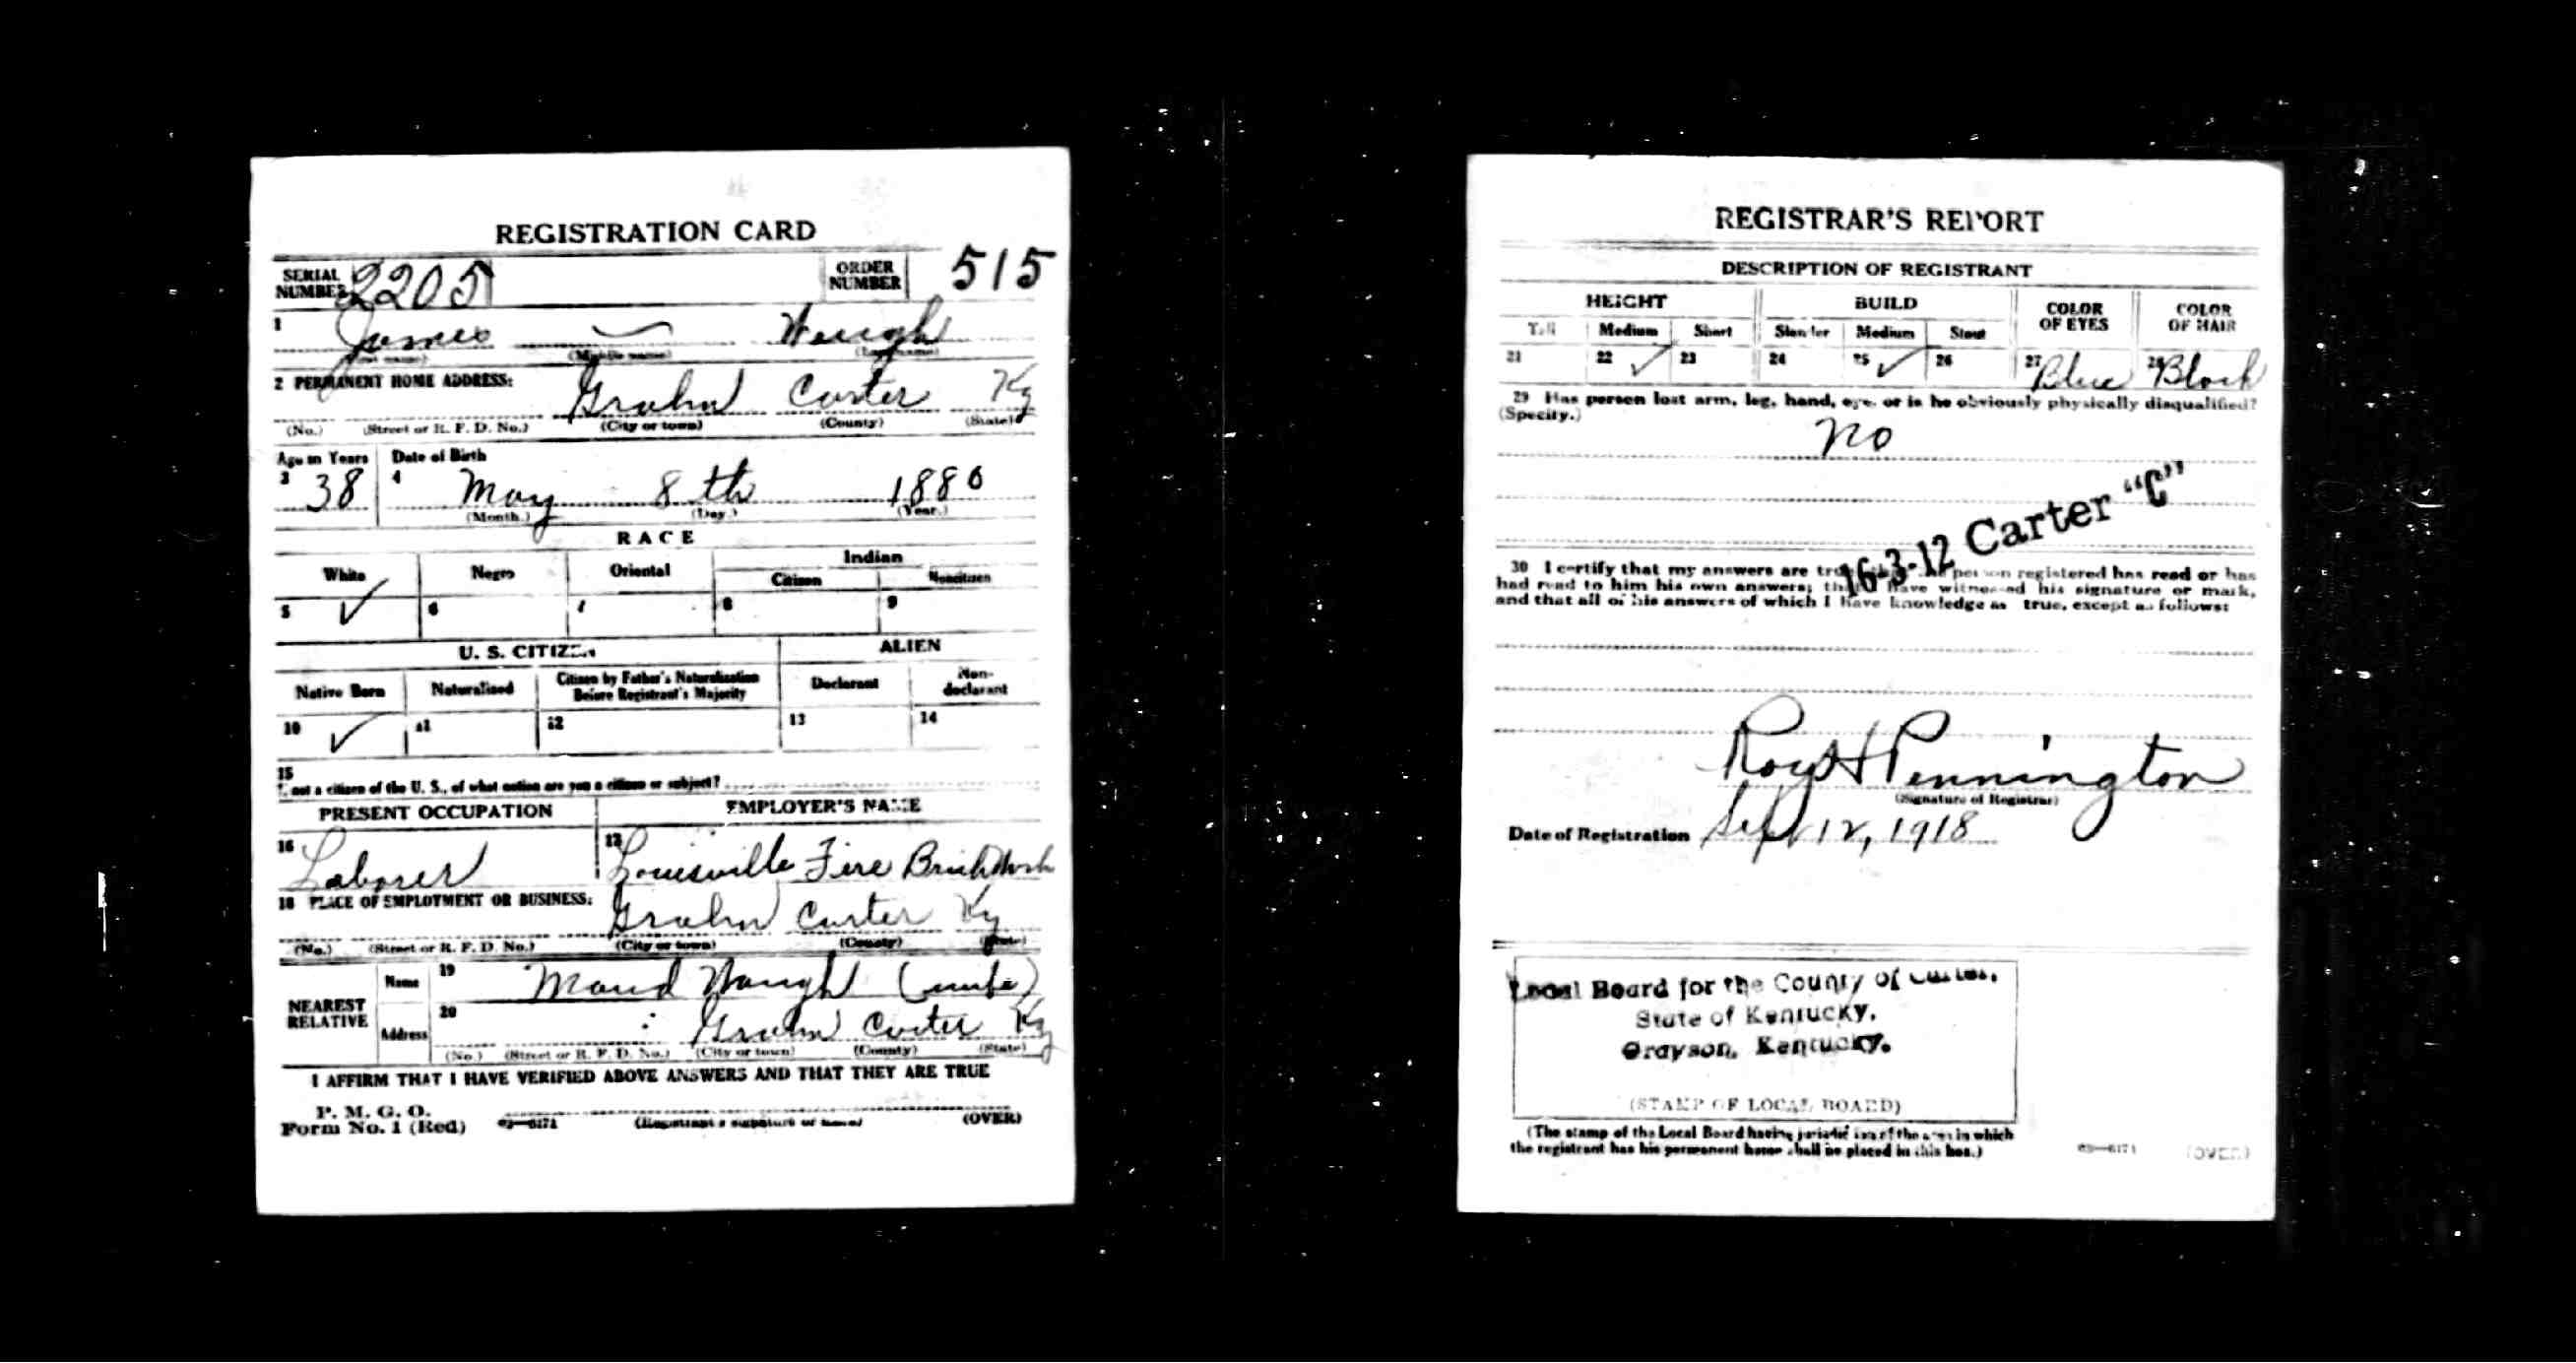 REGISTRATION CARD
SERIAL NUMBER 2205 ORDER NUMBER 515
1 James — Waugh
(First name) (Middle name) (Last name)
2 PERMANENT HOME ADDRESS:
Grahn Carter Ky
(No.) (Street or R. F. D. No.) (City or town) (County) (State)
Age in Years Date of Birth
3 38 4 May 8th 1880
(Month.) (Day.) (Year.)
RACE
White Negro Oriental Indian
Citizen Noncitizen
5 ✓ 6 7 8 9
U. S. CITIZEN ALIEN
Native Born Naturalized Citizen by Father's Naturalization Before Registrant's Majority Declarant Non-declarant
10 ✓ 11 12 13 14
15
If not a citizen of the U. S., of what nation are you a citizen or subject?
PRESENT OCCUPATION EMPLOYER'S NAME
16 Laborer 17 Louisville Fire Brick
18 PLACE OF EMPLOYMENT OR BUSINESS:
Grahn Carter Ky
(No.) (Street or R. F. D. No.) (City or town) (County) (State)
NEAREST RELATIVE
Name 19 Maud Waugh (wife)
Address 20 Grahn Carter Ky
(No.) (Street or R. F. D. No.) (City or town) (County) (State)
I AFFIRM THAT I HAVE VERIFIED ABOVE ANSWERS AND THAT THEY ARE TRUE
P. M. G. O.
Form No. 1 (Red) 03—6171 (Registrant's signature or mark) (OVER)
REGISTRAR'S REPORT
DESCRIPTION OF REGISTRANT
HEIGHT BUILD COLOR OF EYES COLOR OF HAIR
Tall Medium Short Slender Medium Stout
21 22 ✓ 23 24 25 ✓ 26 27 Blue 28 Black
29 Has person lost arm, leg, hand, eye, or is he obviously physically disqualified?
(Specify.)
No
16-3-12 Carter "C"
30 I certify that my answers are true; that the person registered has read or has
had read to him his own answers; that I have witnessed his signature or mark,
and that all of his answers of which I have knowledge are true, except as follows:
Roy H Pennington
(Signature of Registrar)
Date of Registration Sep 12, 1918
Local Board for the County of Carter,
State of Kentucky,
Grayson, Kentucky.
(STAMP OF LOCAL BOARD)
(The stamp of the Local Board having jurisdiction of the area in which
the registrant has his permanent home shall be placed in this box.)
03—6171 (OVER)